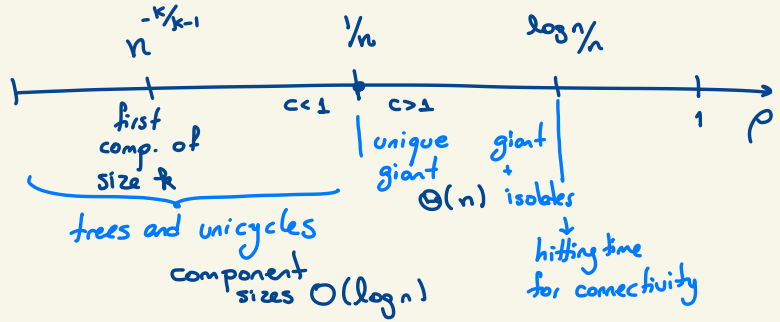 n^{-k/k-1}
1/n
log n/n
c<1
c>1
1
ρ
first
comp. of
size k
unique
giant
Θ(n)
giant
+
isolates
trees and unicycles
component
sizes O(log n)
hitting time
for connectivity